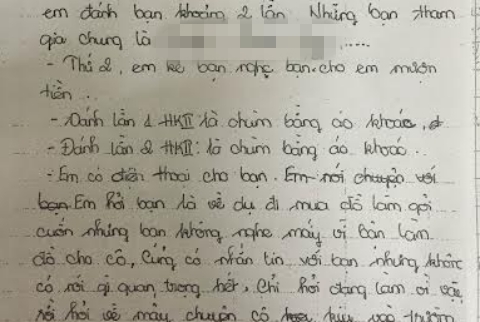 em đánh bạn khoảng 2 lần. Những bạn tham
gia chung là .....
- Thứ 2, em kê bạn nghe bạn cho em mượn
tiền..
- Đánh lần 1 HKII là chùm bằng áo khoác.
- Đánh lần 2 HKII: là chùm bằng áo khoác.
- Em có điện thoại cho bạn. Em nói chuyện với
bạn. Em hỏi bạn là về dụ đi mua đồ làm gỏi
cuốn nhưng bạn không nghe máy vì bận làm
đồ cho cô, Cũng có nhắn tin với bạn nhưng không
có nói gì quan trọng hết, Chỉ hỏi đang làm gì
rồi hỏi về mấy chuyện cô vào trường